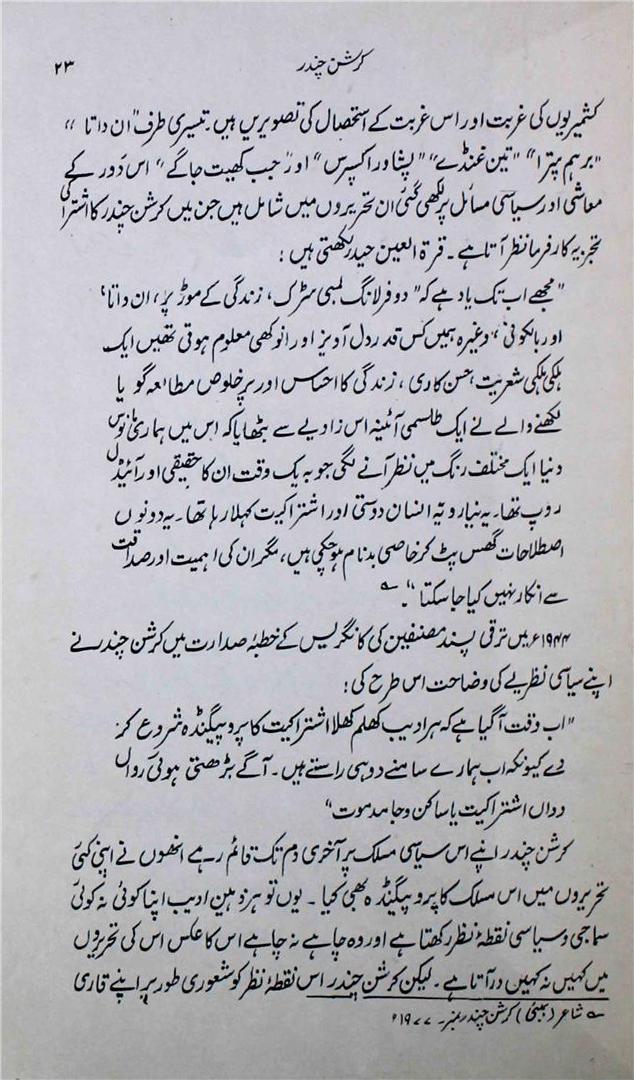 کرشن چندر ۲۳
کشمیریوں کی غربت اور اس غربت کے استحصال کی تصویریں ہیں۔ تیسری طرف "ان داتا"
"برہم پترا" "تین غنڈے" "پشاور اکسپرس" اور "جب کھیت جاگے" اس دور کے
معاشی اور سیاسی مسائل پر لکھی گئی ان تحریروں میں شامل ہیں جن میں کرشن چندر کا اشتراکی
تجزیہ کارفرما نظر آتا ہے۔ قرۃ العین حیدر لکھتی ہیں:
"مجھے اب تک یاد ہے کہ "دو فرلانگ لمبی سڑک، زندگی کے موڑ پر، ان داتا،
اور بالکونی" وغیرہ ہمیں کس قدر دل آویز اور انوکھی معلوم ہوتی تھیں ایک
ہلکی ہلکی شعریت، حسن کاری، زندگی کا احساس اور پرخلوص مطالعہ گویا
لکھنے والے نے ایک طلسمی آئینہ اس زاویے سے بٹھایا کہ اس میں ہماری مانوس
دنیا ایک مختلف رنگ میں نظر آنے لگی جو بہ یک وقت ان کا حقیقی اور آئیڈیل
روپ تھا۔ یہ نیا رویہ انسان دوستی اور اشتراکیت کہلا رہا تھا۔ یہ دونوں
اصطلاحات گھس پٹ کر خاصی بدنام ہو چکی ہیں، مگر ان کی اہمیت اور صداقت
سے انکار نہیں کیا جا سکتا"۔ ؎
۱۹۴۴ء میں ترقی پسند مصنفین کی کانگریس کے خطبۂ صدارت میں کرشن چندر نے
اپنے سیاسی نظریے کی وضاحت اس طرح کی:
"اب وقت آگیا ہے کہ ہر ادیب کھلم کھلا اشتراکیت کا پروپیگنڈہ شروع کر
دے کیونکہ اب ہمارے سامنے دو ہی راستے ہیں۔ آگے بڑھتی ہوئی رواں
دواں اشتراکیت یا ساکن و جامد موت"
کرشن چندر اپنے اس سیاسی مسلک پر آخری دم تک قائم رہے انھوں نے اپنی کئی
تحریروں میں اس مسلک کا پروپیگنڈہ بھی کیا۔ یوں تو ہر ذہین ادیب اپنا کوئی نہ کوئی
سماجی و سیاسی نقطۂ نظر رکھتا ہے اور وہ چاہے نہ چاہے اس کا عکس اس کی تحریروں
میں کہیں نہ کہیں در آتا ہے۔ لیکن کرشن چندر اس نقطۂ نظر کو شعوری طور پر اپنے قاری
؎ شاعر (بمبئی) کرشن چندر نمبر۔ ۱۹۷۷ء